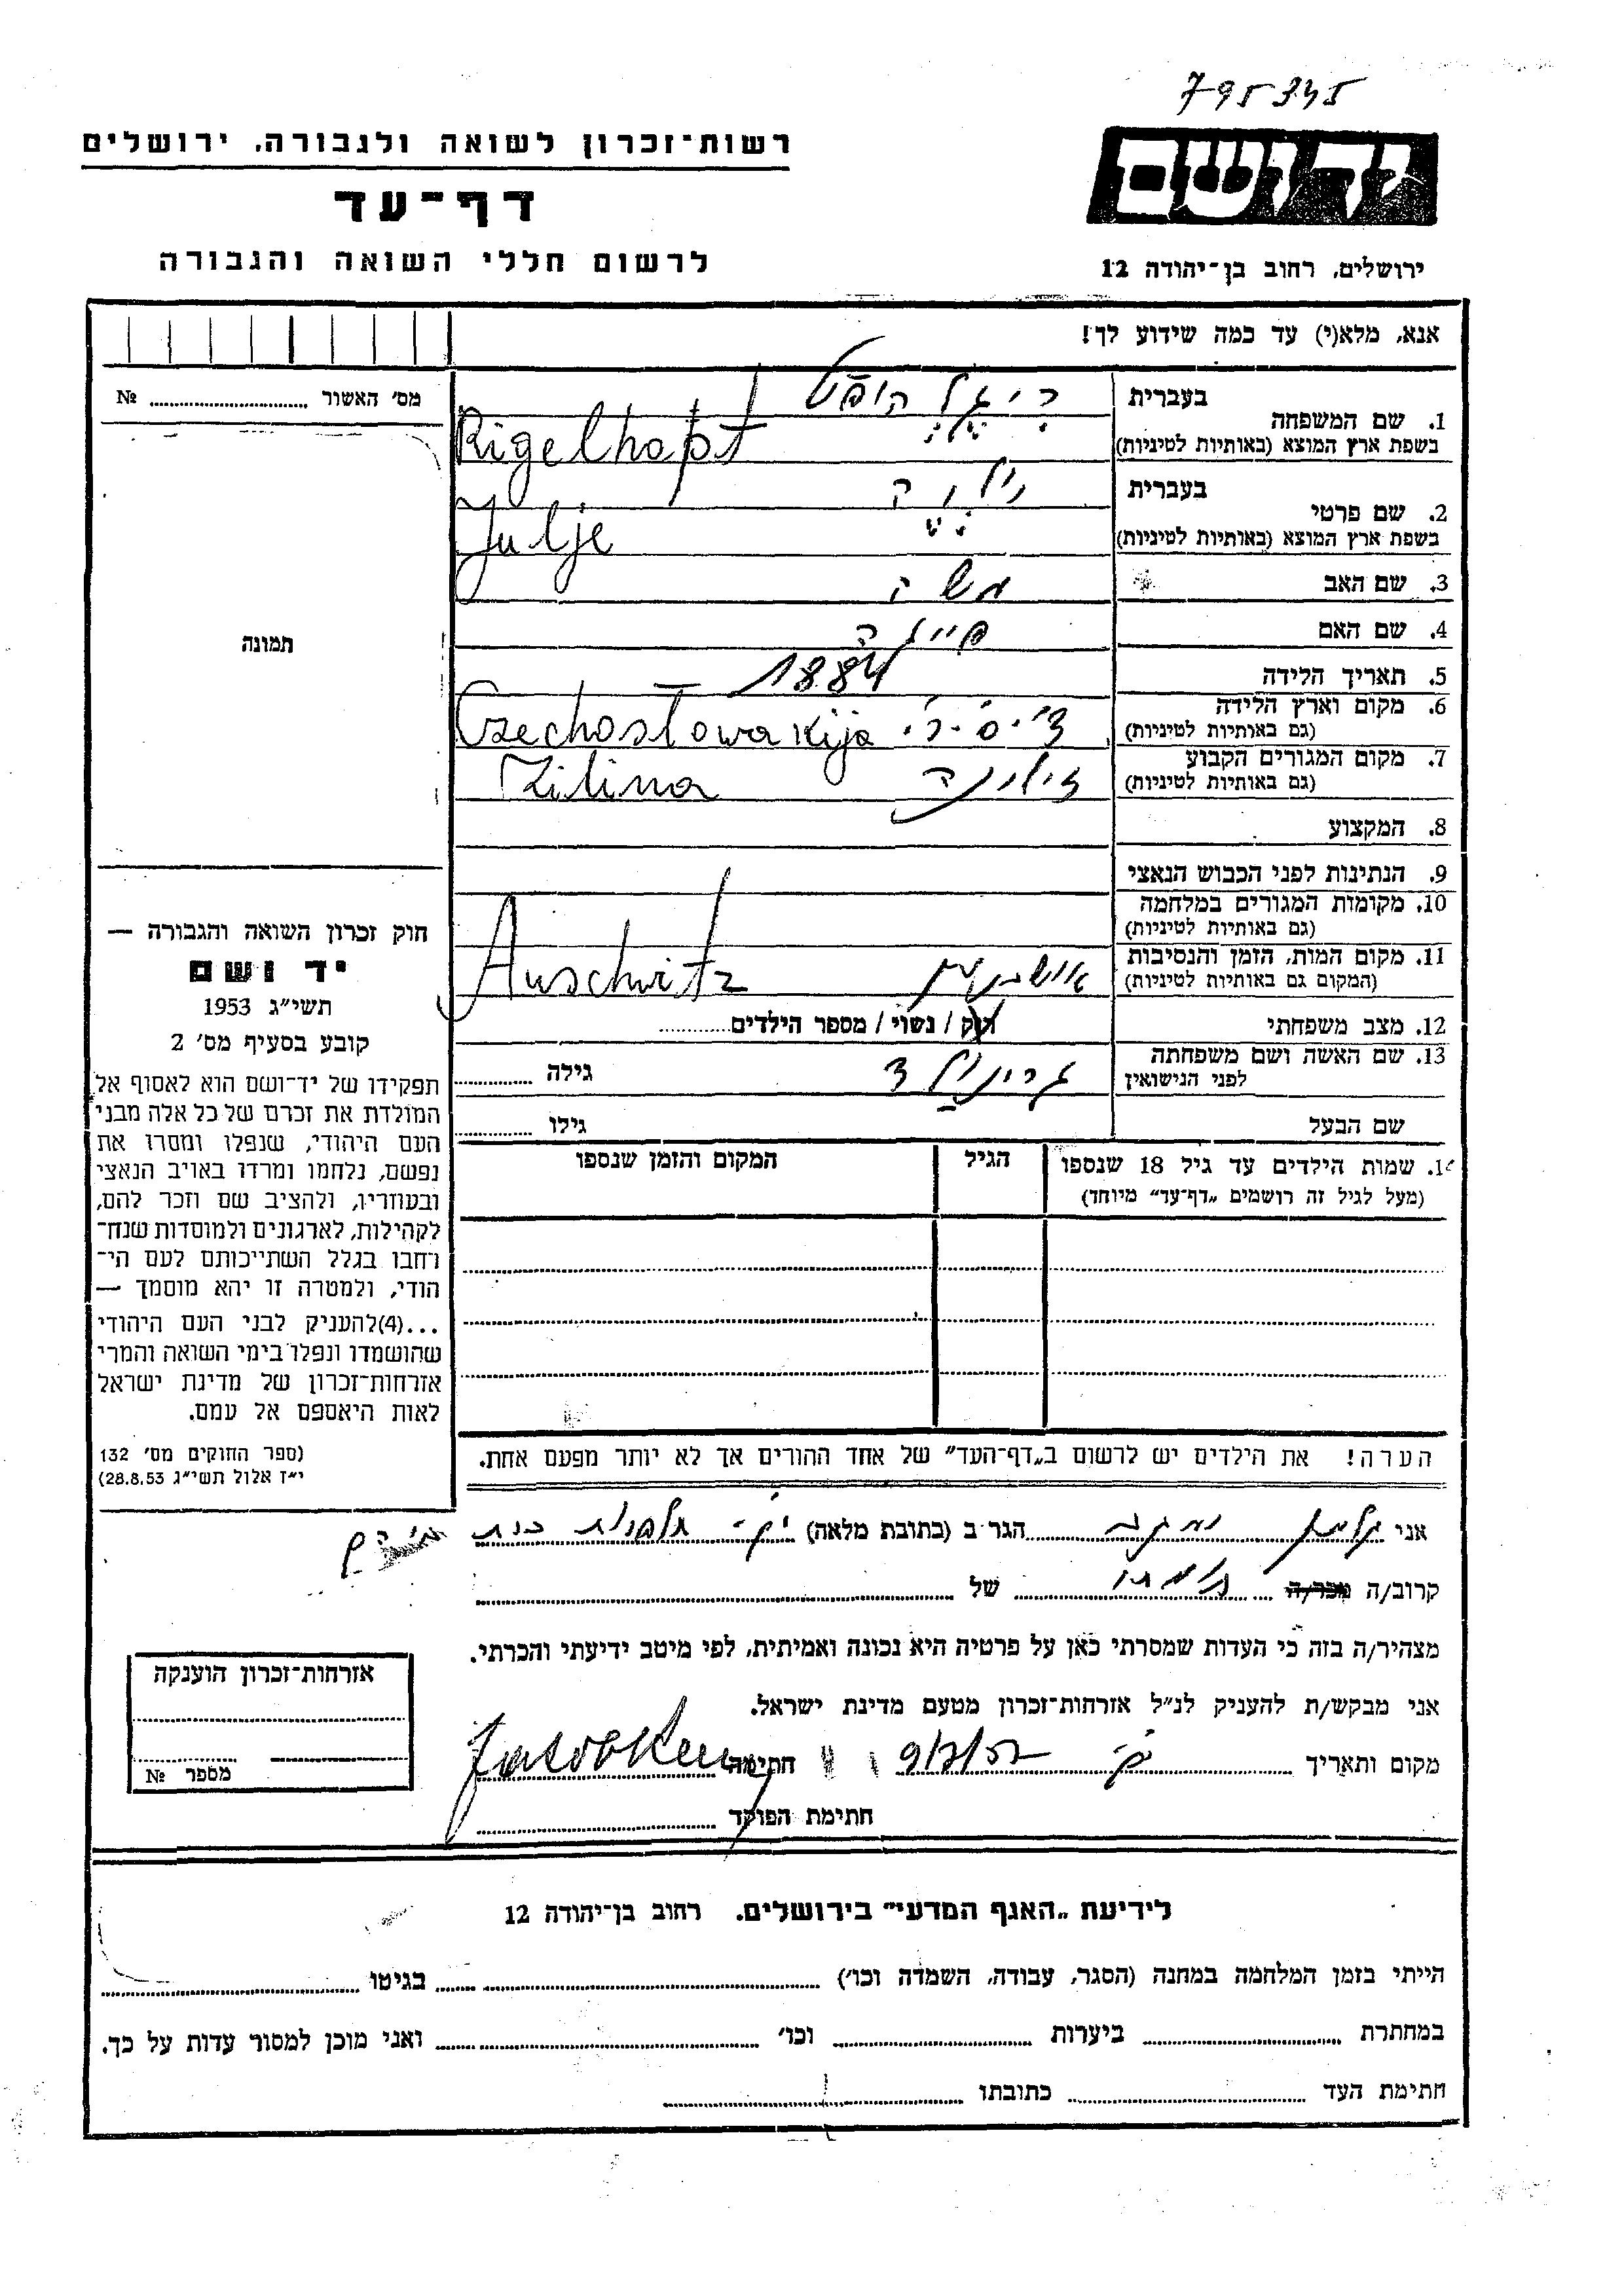 795345
רשות־זכרון לשואה ולגבורה, ירושלים
יד ושם
דף־עד
לרשום חללי השואה והגבורה
ירושלים, רחוב בן־יהודה 12
אנא, מלא(י) עד כמה שידוע לך!
מס׳ האשור № ....................
בעברית ריגלהופט
1. שם המשפחה
בשפת ארץ המוצא (באותיות לטיניות) Rigelhapt
בעברית יוליה
2. שם פרטי
בשפת ארץ המוצא (באותיות לטיניות) Julje
3. שם האב משה
4. שם האם
תמונה
5. תאריך הלידה 1884
6. מקום וארץ הלידה
(גם באותיות לטיניות) צ׳.ס.ר. Czechoslowakija
7. מקום המגורים הקבוע
(גם באותיות לטיניות) זילינה Zilina
8. המקצוע
9. הנתינות לפני הכבוש הנאצי
10. מקומות המגורים במלחמה
(גם באותיות לטיניות)
11. מקום המות, הזמן והנסיבות
(המקום גם באותיות לטיניות) Auschwitz
12. מצב משפחתי רוק / נשוי / מספר הילדים............
13. שם האשה ושם משפחתה
לפני הנישואין גרינולד גילה ............
שם הבעל גילו ............
14. שמות הילדים עד גיל 18 שנספו הגיל המקום והזמן שנספו
(מעל לגיל זה רושמים „דף־עד״ מיוחד)
חוק זכרון השואה והגבורה —
יד ושם
תשי״ג 1953
קובע בסעיף מס׳ 2
תפקידו של יד־ושם הוא לאסוף אל
המולדת את זכרם של כל אלה מבני
העם היהודי, שנפלו ומסרו את
נפשם, נלחמו ומרדו באויב הנאצי
ובעוזריו, ולהציב שם וזכר להם,
לקהילות, לארגונים ולמוסדות שנח־
רחבו בגלל השתייכותם לעם הי־
הודי, ולמטרה זו יהא מוסמך —
...(4)להעניק לבני העם היהודי
שהושמדו ונפלו בימי השואה והמרי
אזרחות־זכרון של מדינת ישראל
לאות היאספם אל עמם.
(ספר החוקים מס׳ 132
י״ז אלול תשי״ג 28.8.53)
הערה! את הילדים יש לרשום ב„דף־העד״ של אחד ההורים אך לא יותר מפעם אחת.
אני יעקב הגר ב (כתובת מלאה)
קרוב/ה מכר/ה של
מצהיר/ה בזה כי העדות שמסרתי כאן על פרטיה היא נכונה ואמיתית, לפי מיטב ידיעתי והכרתי.
אני מבקש/ת להעניק לנ״ל אזרחות־זכרון מטעם מדינת ישראל.
מקום ותאריך חתימה
חתימת הפוקד
אזרחות־זכרון הוענקה
מספר №
לידיעת „האגף המדעי״ בירושלים, רחוב בן־יהודה 12
הייתי בזמן המלחמה במחנה (הסגר, עבודה, השמדה וכו׳) בגיטו
במחתרת ביערות וכו׳ ואני מוכן למסור עדות על כך.
חתימת העד כתובתו